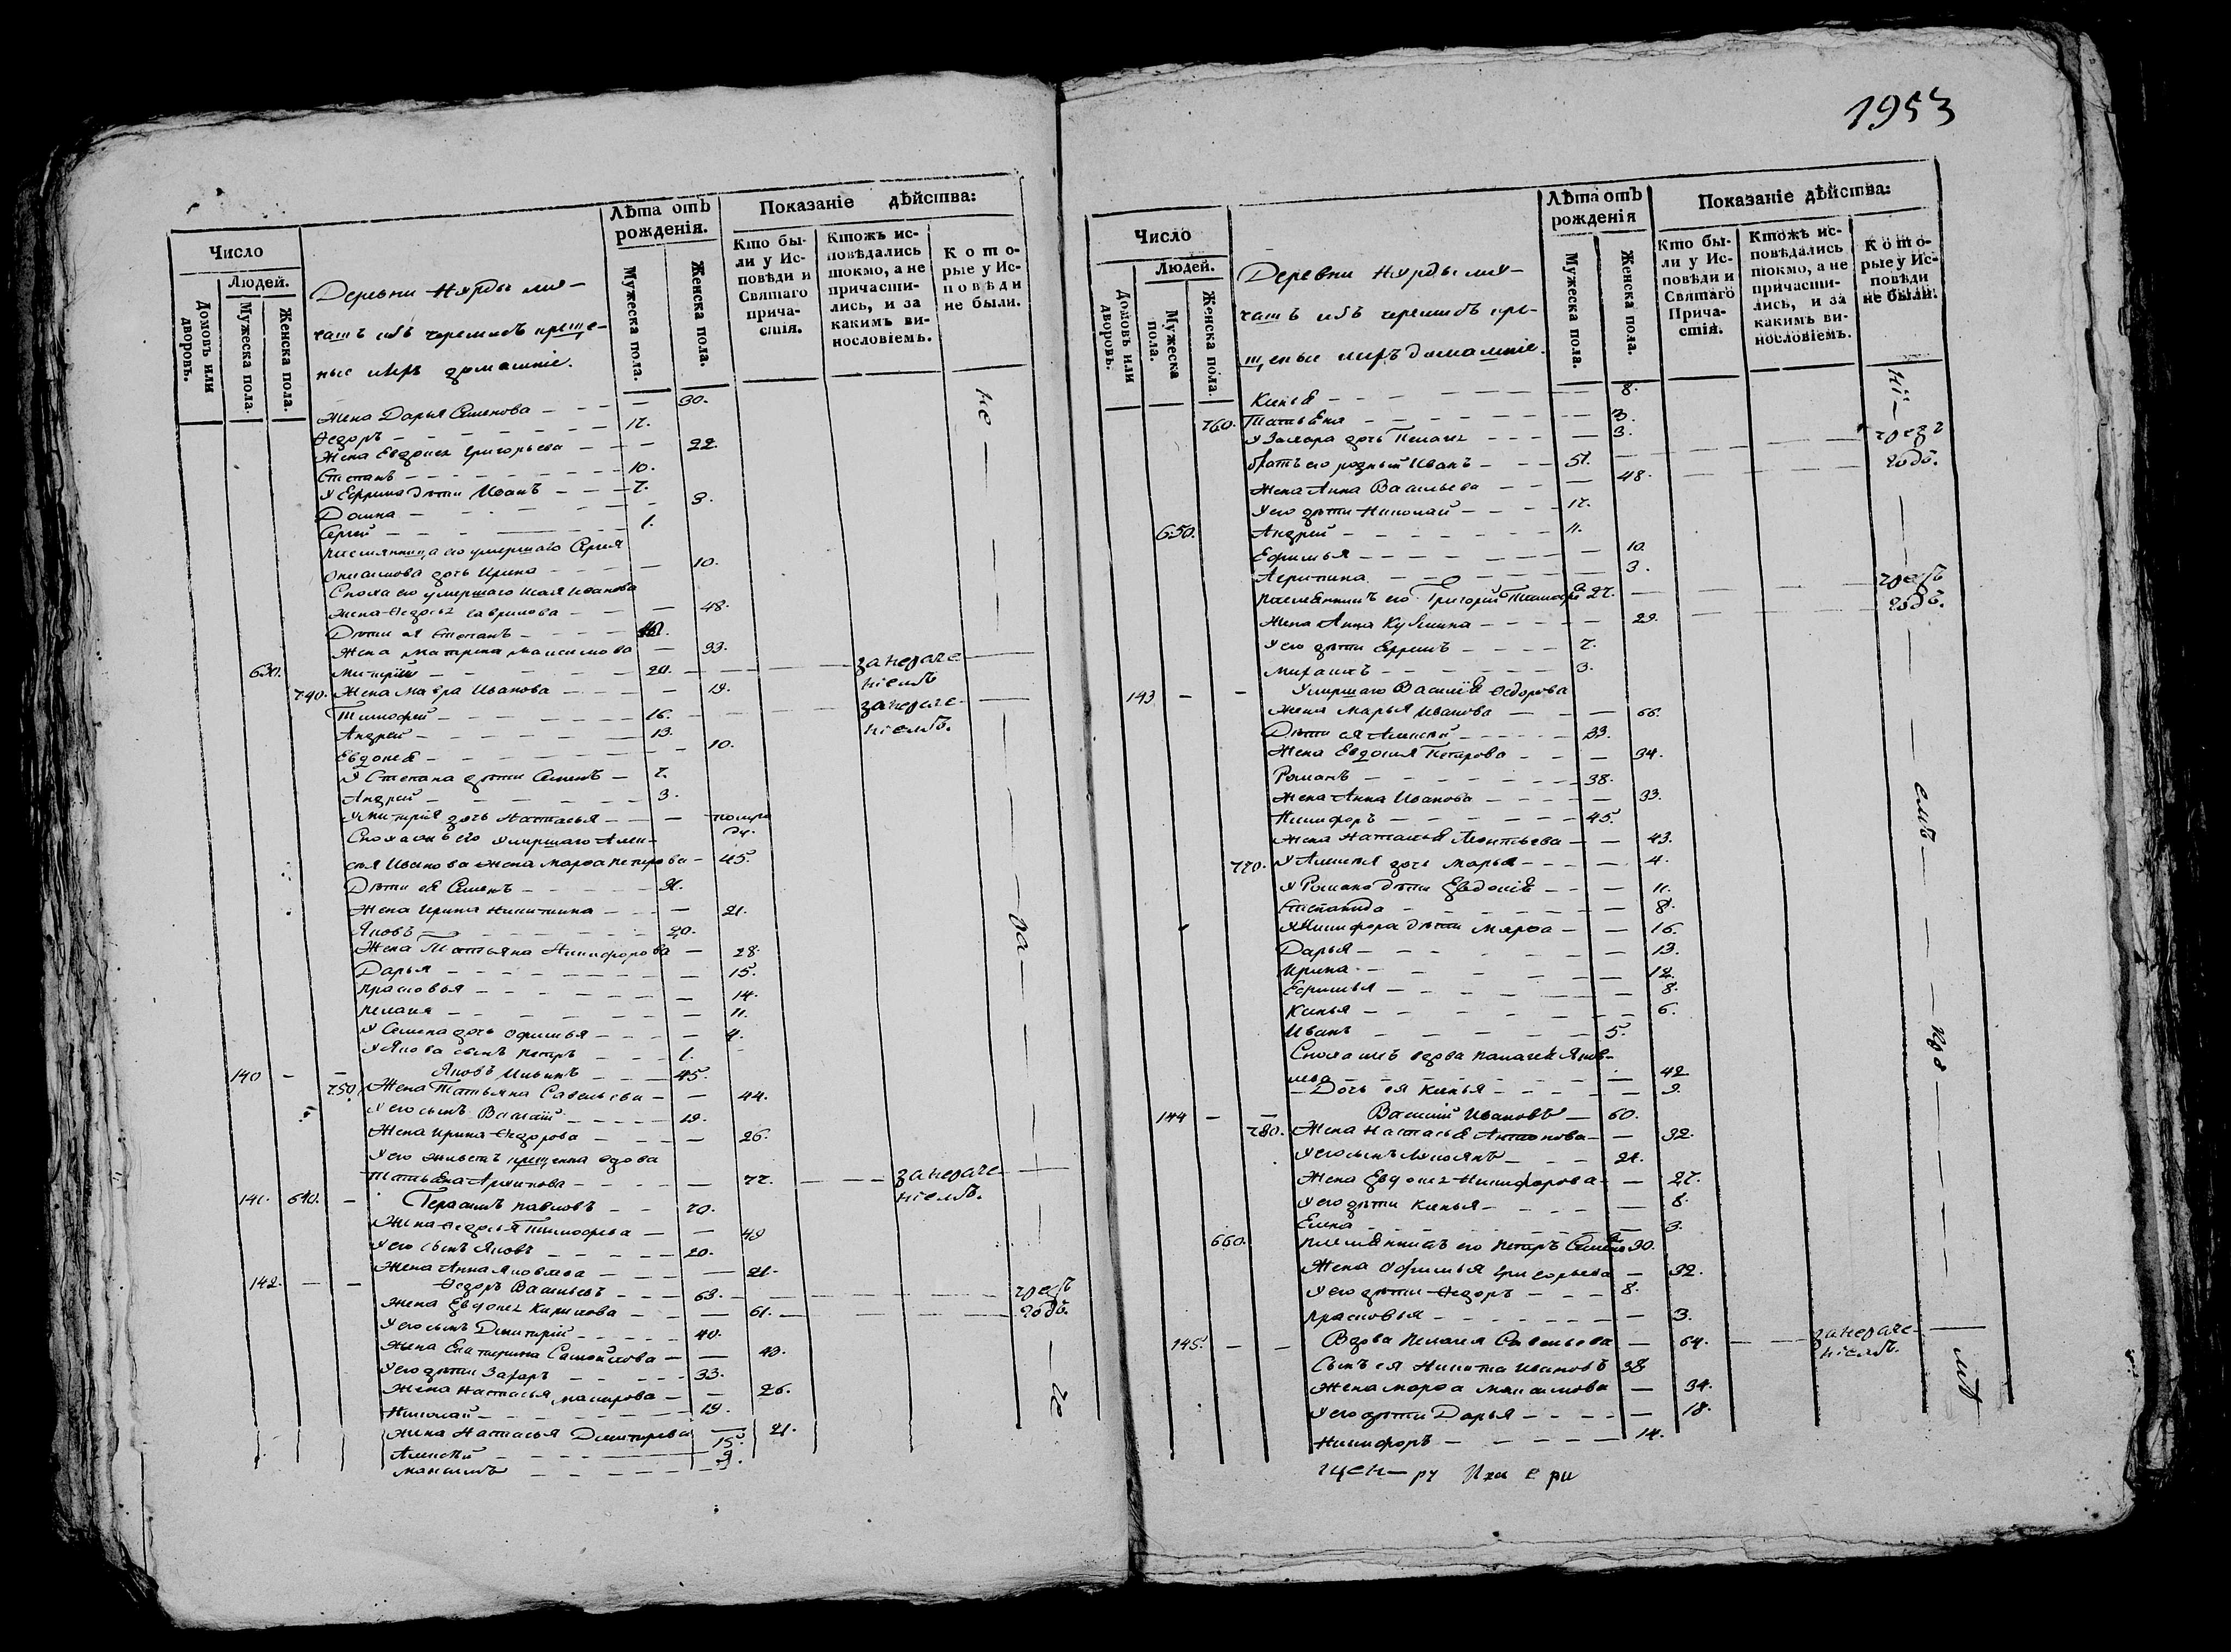 1953
Число
Людей.
Домовъ или дворовъ.
Мужеска пола.
Женска пола.
Деревни Нурды
чатъ изъ черемисъ креще-
ные ихъ домашніе.
Лѣта отъ рожденія.
Мужеска пола.
Женска пола.
Показаніе дѣйства:
Кто бы-
ли у Ис-
повѣди и
Святаго
прича-
стія.
Ктожъ ис-
повѣдались
токмо, а не
причасти-
лись, и за
какимъ ви-
нословіемъ.
Кото-
рые у Ис-
повѣди
не были.
Жена Дарья Семенова — 30.
Ѳедоръ — 17.
Жена Евдокея Григорьева — 22.
Степанъ — 10.
У Ефрима дѣти Иванъ — 7.
Домна — 3.
Сергѣй — 1.
племянница его умершаго Сергѣя
Онисимова дочь Ирина — 10.
Сноха его умершаго Исая Иванова
жена Ѳедосья Гаврилова — 48.
Дѣти ея Степанъ
Жена Матрена Максимова — 33.
630. Митрій — 20. — за нераче-
ніемъ
740. Жена Мавра Иванова — 19.
Тимофей — 16. — за нераче-
ніемъ.
Андрей — 13.
Евдокея — 10.
У Степана дѣти Семенъ — 7.
Андрей — 3.
У Митрія дочь Настасья — полуго
ду.
Сноха его умершаго Алек-
сѣя Иванова жена Марѳа Петрова — 45.
Дѣти ея Семенъ
Жена Ирина Никитина — 21.
Яковъ — 20.
Жена Татьяна Никифорова — 28.
Дарья — 15.
Прасковья — 14.
Пелагея — 11.
У Семена дочь Офимья — 4.
У Якова сынъ Петръ — 1.
140 — — Яковъ Ильинъ — 45.
750. Жена Татьяна Савельева — 44.
У его сынъ Василій — 19.
Жена Ирина Ѳедорова — 26.
У его живетъ крещенна вдова
Татьяна Архипова — 77. — за нераче-
ніемъ.
141. 640. — Герасимъ Павловъ — 70.
Жена Ѳедосья Тимофеева — 49
У его сынъ Яковъ — 20.
Жена Анна Яковлева — 21.
142. — — Ѳедоръ Васильевъ — 63.
Жена Евдокея Кирилова — 61.
У его сынъ Дмитрій — 40.
Жена Екатерина Самойлова — 43.
У его дѣти Захаръ — 33.
Жена Настасья Макарова — 26.
Николай — 19.
Жена Настасья Дмитрева — 21.
Алексѣй — 15.
Максимъ — 9.
Число
Людей.
Домовъ или дворовъ.
Мужеска пола.
Женска пола.
Деревни Нурды
чатъ изъ черемисъ кре-
щеные ихъ домашніе.
Лѣта отъ рожденія
Мужеска пола.
Женска пола.
Показаніе дѣйства:
Кто бы-
ли у Ис-
повѣди и
Святаго
Прича-
стія.
Ктожъ ис-
повѣдались
токмо, а не
причасти-
лись, и за
какимъ ви-
нословіемъ.
Кото-
рые у Ис-
повѣди
не были.
8.
760. Татьяна — 3.
У Захара дочь Пелагея — 3.
братъ его родный Иванъ — 51.
Жена Анна Васильева — 48.
У его дѣти Николай — 17.
650. Андрей — 11.
Ефимья — 10.
Агрипина — 3.
племянникъ его Григорій — 27.
Жена Анна Кузмина — 29.
У его дѣти Ефремъ — 7.
3.
143 — — Умершаго Василія Ѳедорова
жена Марья Иванова — 66.
Дѣти ея Алексѣй — 33.
Жена Евдокея Петрова — 34.
Романъ — 38.
Жена Анна Иванова — 33.
Никифоръ — 45.
Жена Наталья Леонтьева — 43.
770. У Алексѣя дочь Марья — 4.
У Романа дѣти Евдокія — 11.
Степанида — 8.
У Никифора дѣти Марѳа — 16.
Дарья — 13.
Ирина — 12.
Ефимья — 8.
6.
Иванъ — 5.
Сноха ихъ вдова Палагея Яков-
лева — 42
Дочь ея — 9.
144 — — Василій Ивановъ — 60.
780. Жена Настасья Антонова — 32.
У его сынъ
Жена Евдокея Никифорова — 27.
8.
Елена — 3.
660. племянникъ его Петръ — 30.
Жена Офимья Григорьева — 32.
У его дѣти Ѳедоръ — 8.
Прасковья — 3.
145. — — Вдова Пелагея Савельева — 64. — за нераче-
ніемъ.
Сынъ ея Никита Ивановъ 38
Жена Марѳа Максимова — 34.
У его дѣти Дарья — 18.
Никифоръ — 14.